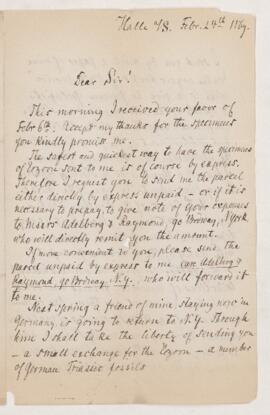 Halle a/S. Febr. 24th 1869.
Dear Sir!
This morning I received your favor of
Febr 6th. Accept my thanks for the specimens
you kindly promise me.
The safest and quickest way to have the specimens
of Eozoon sent to me is of course by express.
Therefore I request you to send me the parcel
either directly by express unpaid – or if it is
necessary to prepay, to give note of your expenses
to Messrs Adelberg & Raymond, 90 Brdway, N York
who will directly remit you the amount.
If more convenient to you, please send the
parcel unpaid by express to me care Adelberg &
Raymond, 90 Brdway, N.Y. who will forward it
to me.
Next spring a friend of mine staying now in
Germany is going to return to N.Y. Through
him I shall take the liberty of sending you
– a small exchange for the Eozoon – a number
of German Triassic fossils